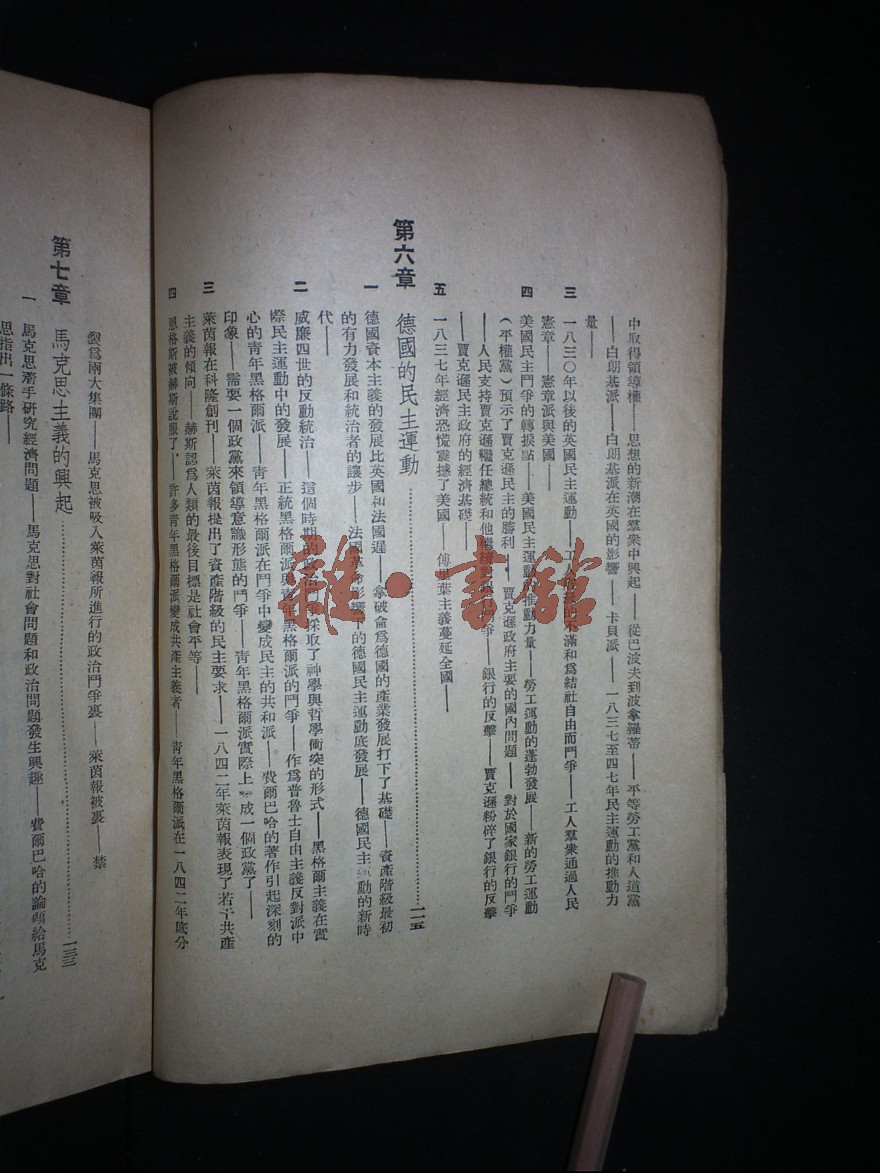 中取得領導權——思想的新潮在羣衆中興起——從巴波夫到波拿羅蒂——平等勞工黨和人道黨
——白朗基派——白朗基派在英國的影響——卡貝派——一八三七至四七年民主運動的推動力
量——
三 一八三〇年以後的英國民主運動——工人階級的不滿和爲結社自由而鬥爭——工人羣衆通過人民
憲章——憲章派與美國——
四 美國民主鬥爭的轉捩點——美國民主運動的推動力量——勞工運動的蓬勃發展——新的勞工運動
（平權黨）預示了賈克遜民主的勝利——賈克遜政府主要的國內問題——對於國家銀行的鬥爭
——人民支持賈克遜繼任總統和他繼續對銀行的鬥爭——銀行的反擊——賈克遜粉碎了銀行的反擊
——賈克遜民主政府的經濟基礎——
五 一八三七年經濟恐慌震撼了美國——傅里葉主義蔓延全國——
第六章 德國的民主運動……一一五
一 德國資本主義的發展比英國和法國遲——拿破侖爲德國的產業發展打下了基礎——資產階級最初
的有力發展和統治者的讓步——法國革命影響下的德國民主運動底發展——德國民主運動的新時
代——
二 威廉四世的反動統治——這個時期的政治鬥爭採取了神學與哲學衝突的形式——黑格爾主義在實
際民主運動中的發展——正統黑格爾派與青年黑格爾派的鬥爭——作爲普魯士自由主義反對派中
心的青年黑格爾派——青年黑格爾派在鬥爭中變成民主的共和派——費爾巴哈的著作引起深刻的
印象——需要一個政黨來領導意識形態的鬥爭——青年黑格爾派實際上 成一個政黨了——
三 萊茵報在科隆創刊——萊茵報提出了資產階級的民主要求——一八四二年萊茵報表現了若干共產
主義的傾向——赫斯認爲人類的最後目標是社會平等——
四 恩格斯被赫斯說服了，許多青年黑格爾派變成共產主義者——青年黑格爾派在一八四二年底分
裂爲兩大集團——馬克思被吸入萊茵報所進行的政治鬥爭裏——萊茵報被禁——
第七章 馬克思主義的興起……一三三
一 馬克思着手研究經濟問題——馬克思對社會問題和政治問題發生興趣——費爾巴哈的論綱給馬克
思指出一條路——
雜·書館